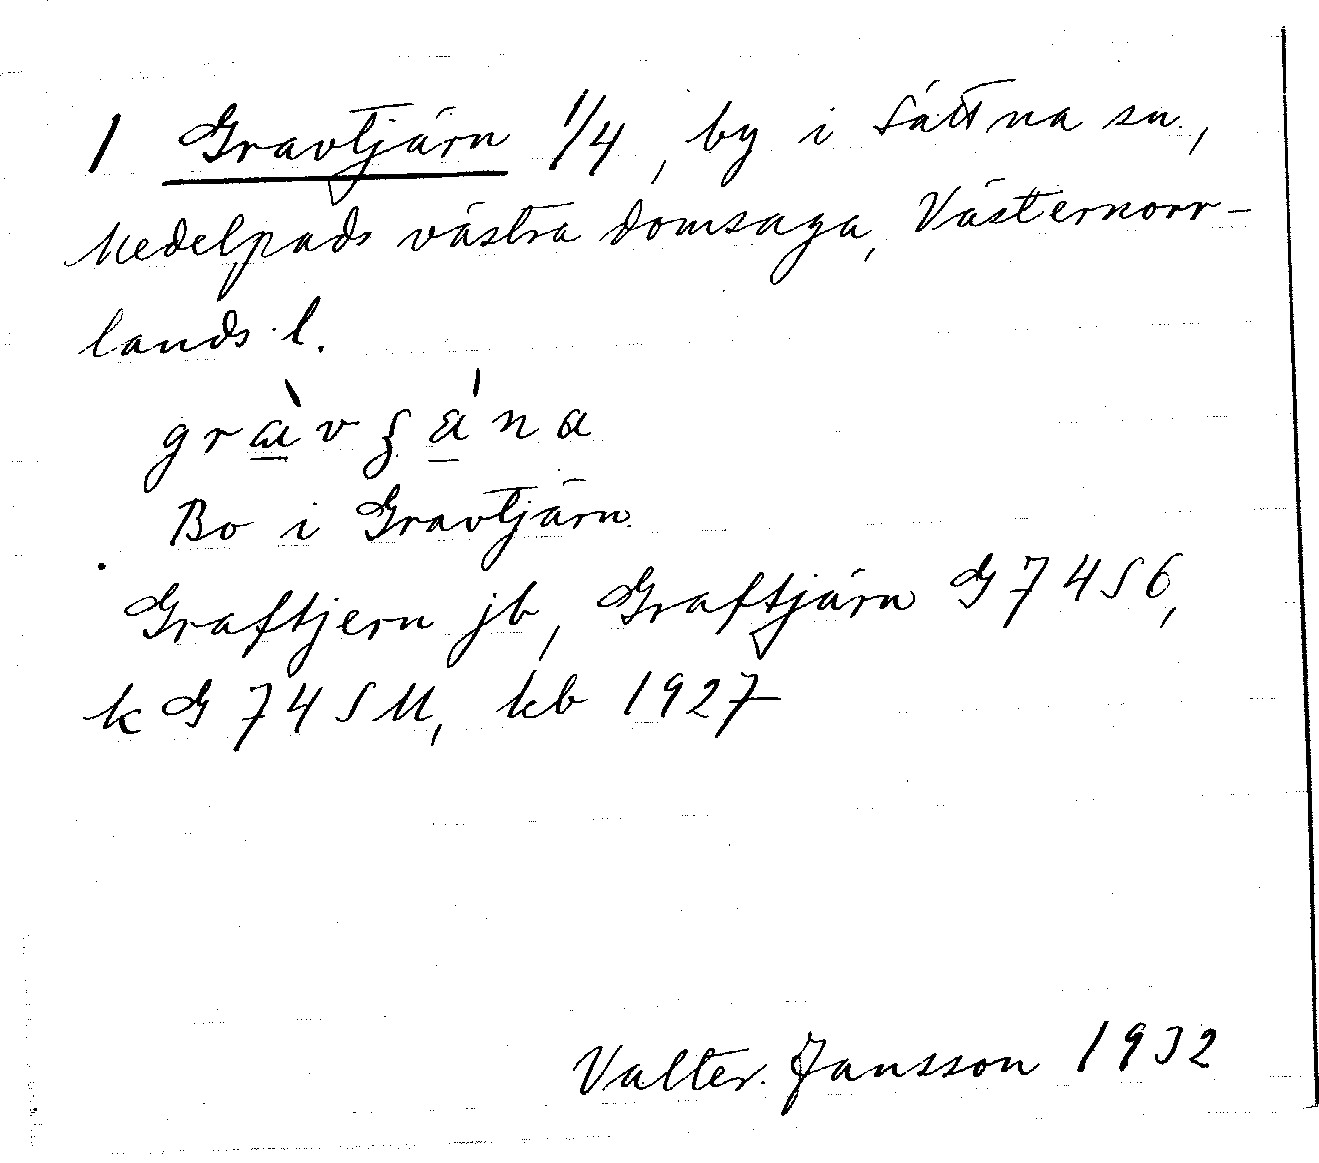 1 Gravtjärn 1/4, by i Sättna sn.,
Medelpads västra domsaga, Västernorr-
lands l.
gràvʂána
Bo i Gravtjärn.
Graftjern jb, Graftjärn G 74 S6,
k G 74 SM, kb 1927
Valter Jansson 1932